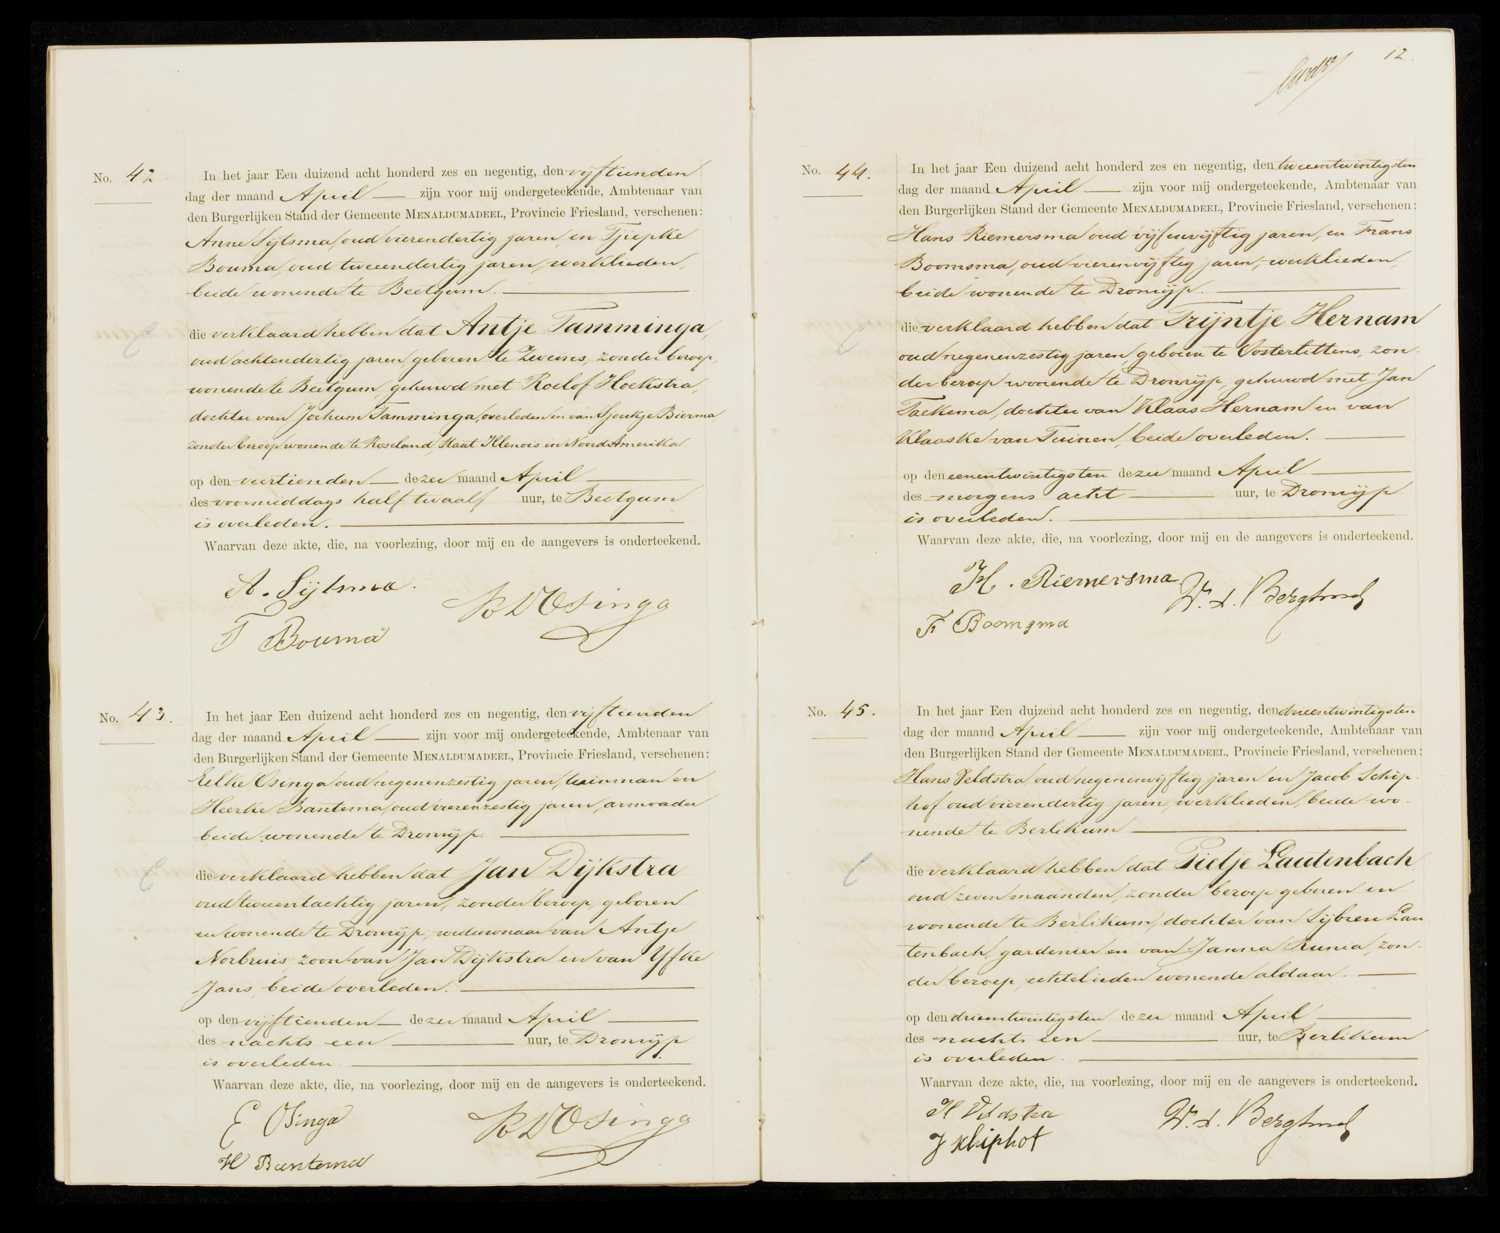 No. 42
In het jaar Een duizend acht honderd zes en negentig, den vijftienden
dag der maand April zijn voor mij ondergeteekende, Ambtenaar van
den Burgerlijken Stand der Gemeente MENALDUMADEEL, Provincie Friesland, verschenen:
Anne Sijtsma, oud vierendertig jaren, en Tjepke
Bouma, oud tweeendertig jaren, werklieden,
beide wonende te Beetgum.
die verklaard hebben dat Antje Tamminga,
oud achtendertig jaren, geboren te zonder beroep,
wonende te Beetgum, gehuwd met Roelof Hoekstra,
dochter van Jochum Tamminga, overleden en van Sjoukje Bierma
zonder beroep wonende te Roseland, Staat Illenois in Noord Amerika
op den veertienden dezer maand April
des voormiddags half twaalf uur, te Beetgum
is overleden.
Waarvan deze akte, die, na voorlezing, door mij en de aangevers is onderteekend.
A. Sijtsma.
T Bouma
Osinga
No. 43.
In het jaar Een duizend acht honderd zes en negentig, den vijftienden
dag der maand April zijn voor mij ondergeteekende, Ambtenaar van
den Burgerlijken Stand der Gemeente MENALDUMADEEL, Provincie Friesland, verschenen:
Eelke Osinga, oud negenenzestig jaren, tuinman en
Heerke Bantema, oud vierenzestig jaren, armvader
beide wonende te Dronrijp
die verklaard hebben dat Jan Dijkstra
oud tweeentachtig jaren, zonder beroep, geboren
en wonende te Dronrijp, weduwnaar van Antje
Norbruis zoon van Jan Dijkstra en van Yfke
Jans, beide overleden.
op den vijftienden dezer maand April
des nachts een uur, te Dronrijp
is overleden
Waarvan deze akte, die, na voorlezing, door mij en de aangevers is onderteekend.
E Osinga
H Bantema
Osinga
12.
No. 44.
In het jaar Een duizend acht honderd zes en negentig, den tweeentwintigsten
dag der maand April zijn voor mij ondergeteekende, Ambtenaar van
den Burgerlijken Stand der Gemeente MENALDUMADEEL, Provincie Friesland, verschenen:
Hans Riemersma oud vijfenvijftig jaren, en Frans
Boomsma, oud vierenvijftig jaren, werklieden,
beide wonende te Dronrijp
die verklaard hebben dat Trijntje Hernam
oud negenenzestig jaren, geboren te Oosterlittens, zon-
der beroep wonende te Dronrijp, gehuwd met Jan
Taekema, dochter van Klaas Hernam en van
Klaaske van Tuinen, beide overleden.
op den eenentwintigsten dezer maand April
des morgens acht uur, te Dronrijp
is overleden.
Waarvan deze akte, die, na voorlezing, door mij en de aangevers is onderteekend.
H. Riemersma
F Boomsma
W. d. Berghuis
No. 45.
In het jaar Een duizend acht honderd zes en negentig, den drieentwintigsten
dag der maand April zijn voor mij ondergeteekende, Ambtenaar van
den Burgerlijken Stand der Gemeente MENALDUMADEEL, Provincie Friesland, verschenen:
Hans Veldstra, oud negenenvijftig jaren en Jacob Schip-
hof oud vierendertig jaren, werklieden, beide wo-
nende te Berlikum
die verklaard hebben dat Pietje Lautenbach
oud zeven maanden, zonder beroep, geboren en
wonende te Berlikum, dochter van Sijbren Lau
tenbach, gardenier en van Janna Runia, zon-
der beroep, echtelieden wonende aldaar.
op den drieentwintigsten dezer maand April
des nachts een uur, te Berlikum
is overleden.
Waarvan deze akte, die, na voorlezing, door mij en de aangevers is onderteekend.
H Veldstra
J Skiphof
W. d. Berghuis